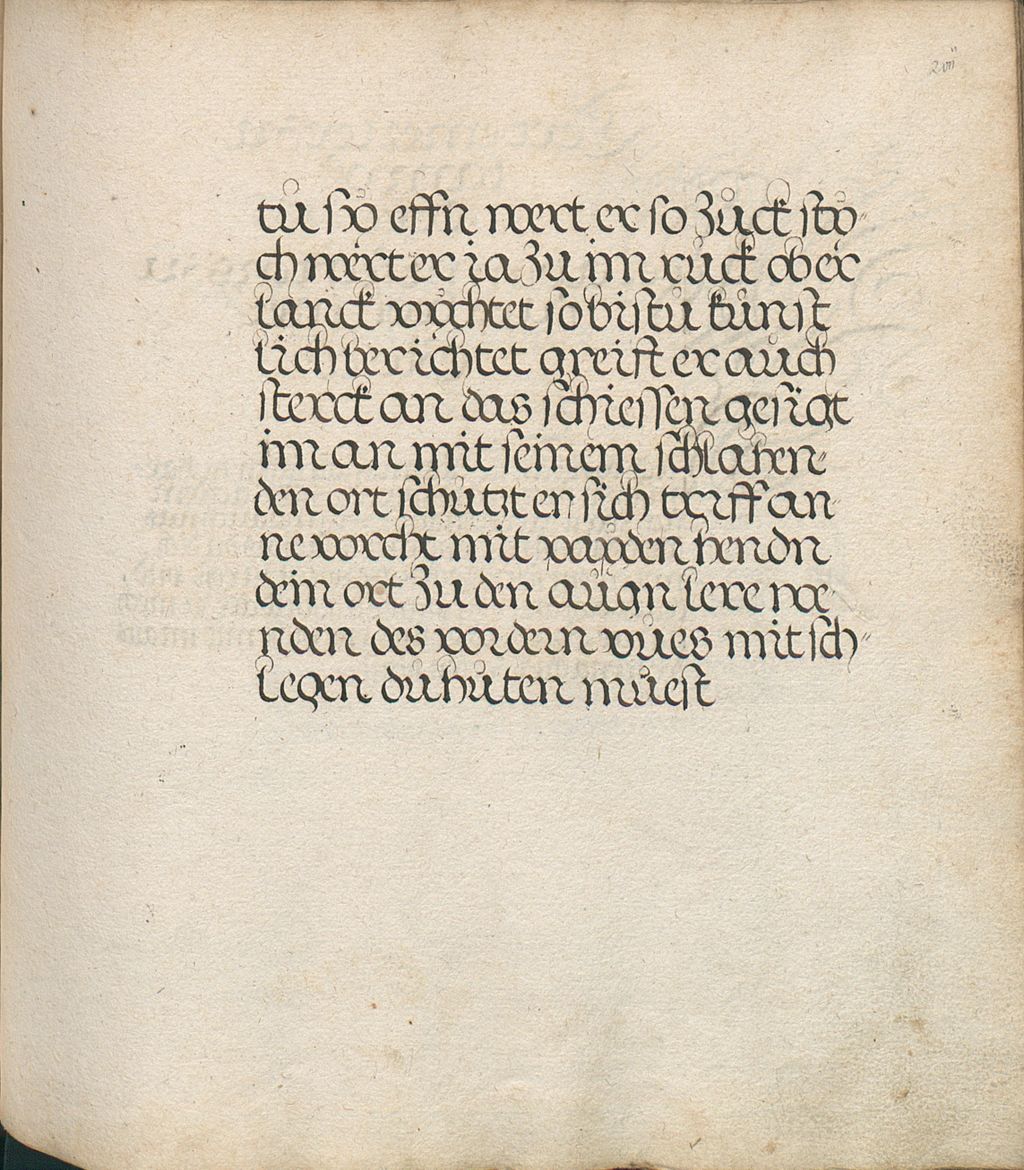 tů sÿ effn wert er so Zůck stö=
ch wert er ia Zu im růck ober
lanck vichtet so bistů kůnst
lich berichtet greift er aůch
sterck an das schiessen gesigt
im an mit seinem schlahen=
den ort schůtzt er sich triff an
ne vorcht mit paÿden hendn
dein ort Zu den aůgn lere we
nden des vordern vůes mit sch=
legen dů hůten můest